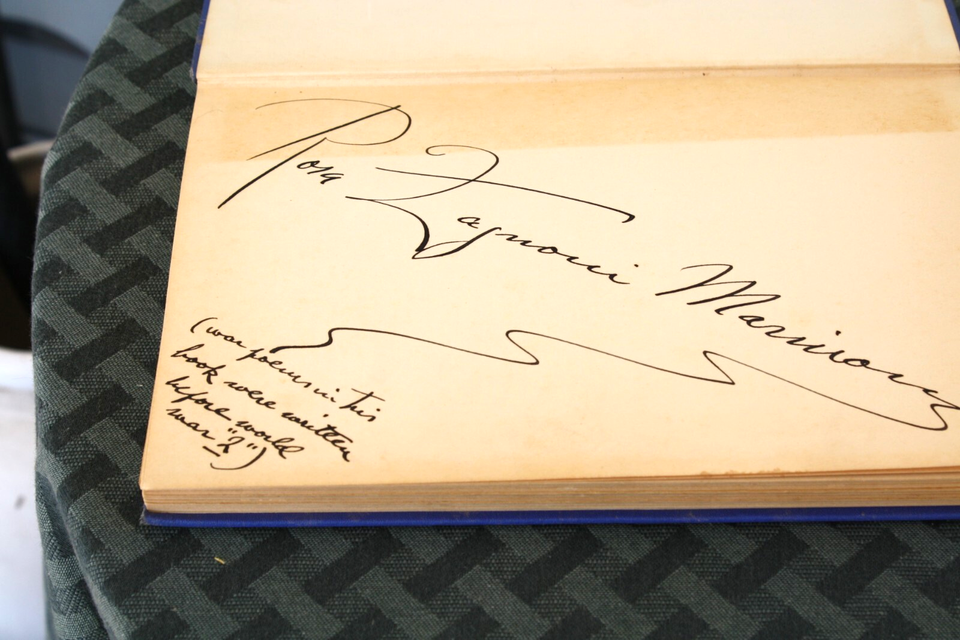 Rosa Zagnoni Marinoni
(war poems in this
book were written
before world
war "2")